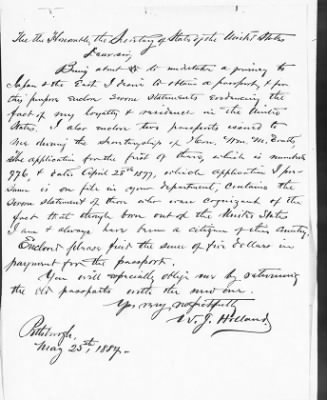 To the Honorable, the Secretary of State of the United States
Dear sir,
Being about to undertake a journey to
Japan & the East I desire to obtain a passport, & for
this purpose enclose sworn statements evidencing the
fact of my loyalty & residence in the United
States. I also enclose two passports issued to
me during the Secretaryship of Hon. Wm. M. Evarts,
the application for the first of these, which is numbered
996, & dated April 28th 1877, which application I pre-
sume is on file in your department, contains the
sworn statement of those who were cognizant of the
fact that though born out of the United States
I am & always have been a citizen of this country.
Enclosed please find the sum of five dollars in
payment for the passport.
You will especially oblige me by returning
the old passports with the new one.
Yrs very respectfully
W. J. Holland.
Pittsburgh,
May 25th, 1887.